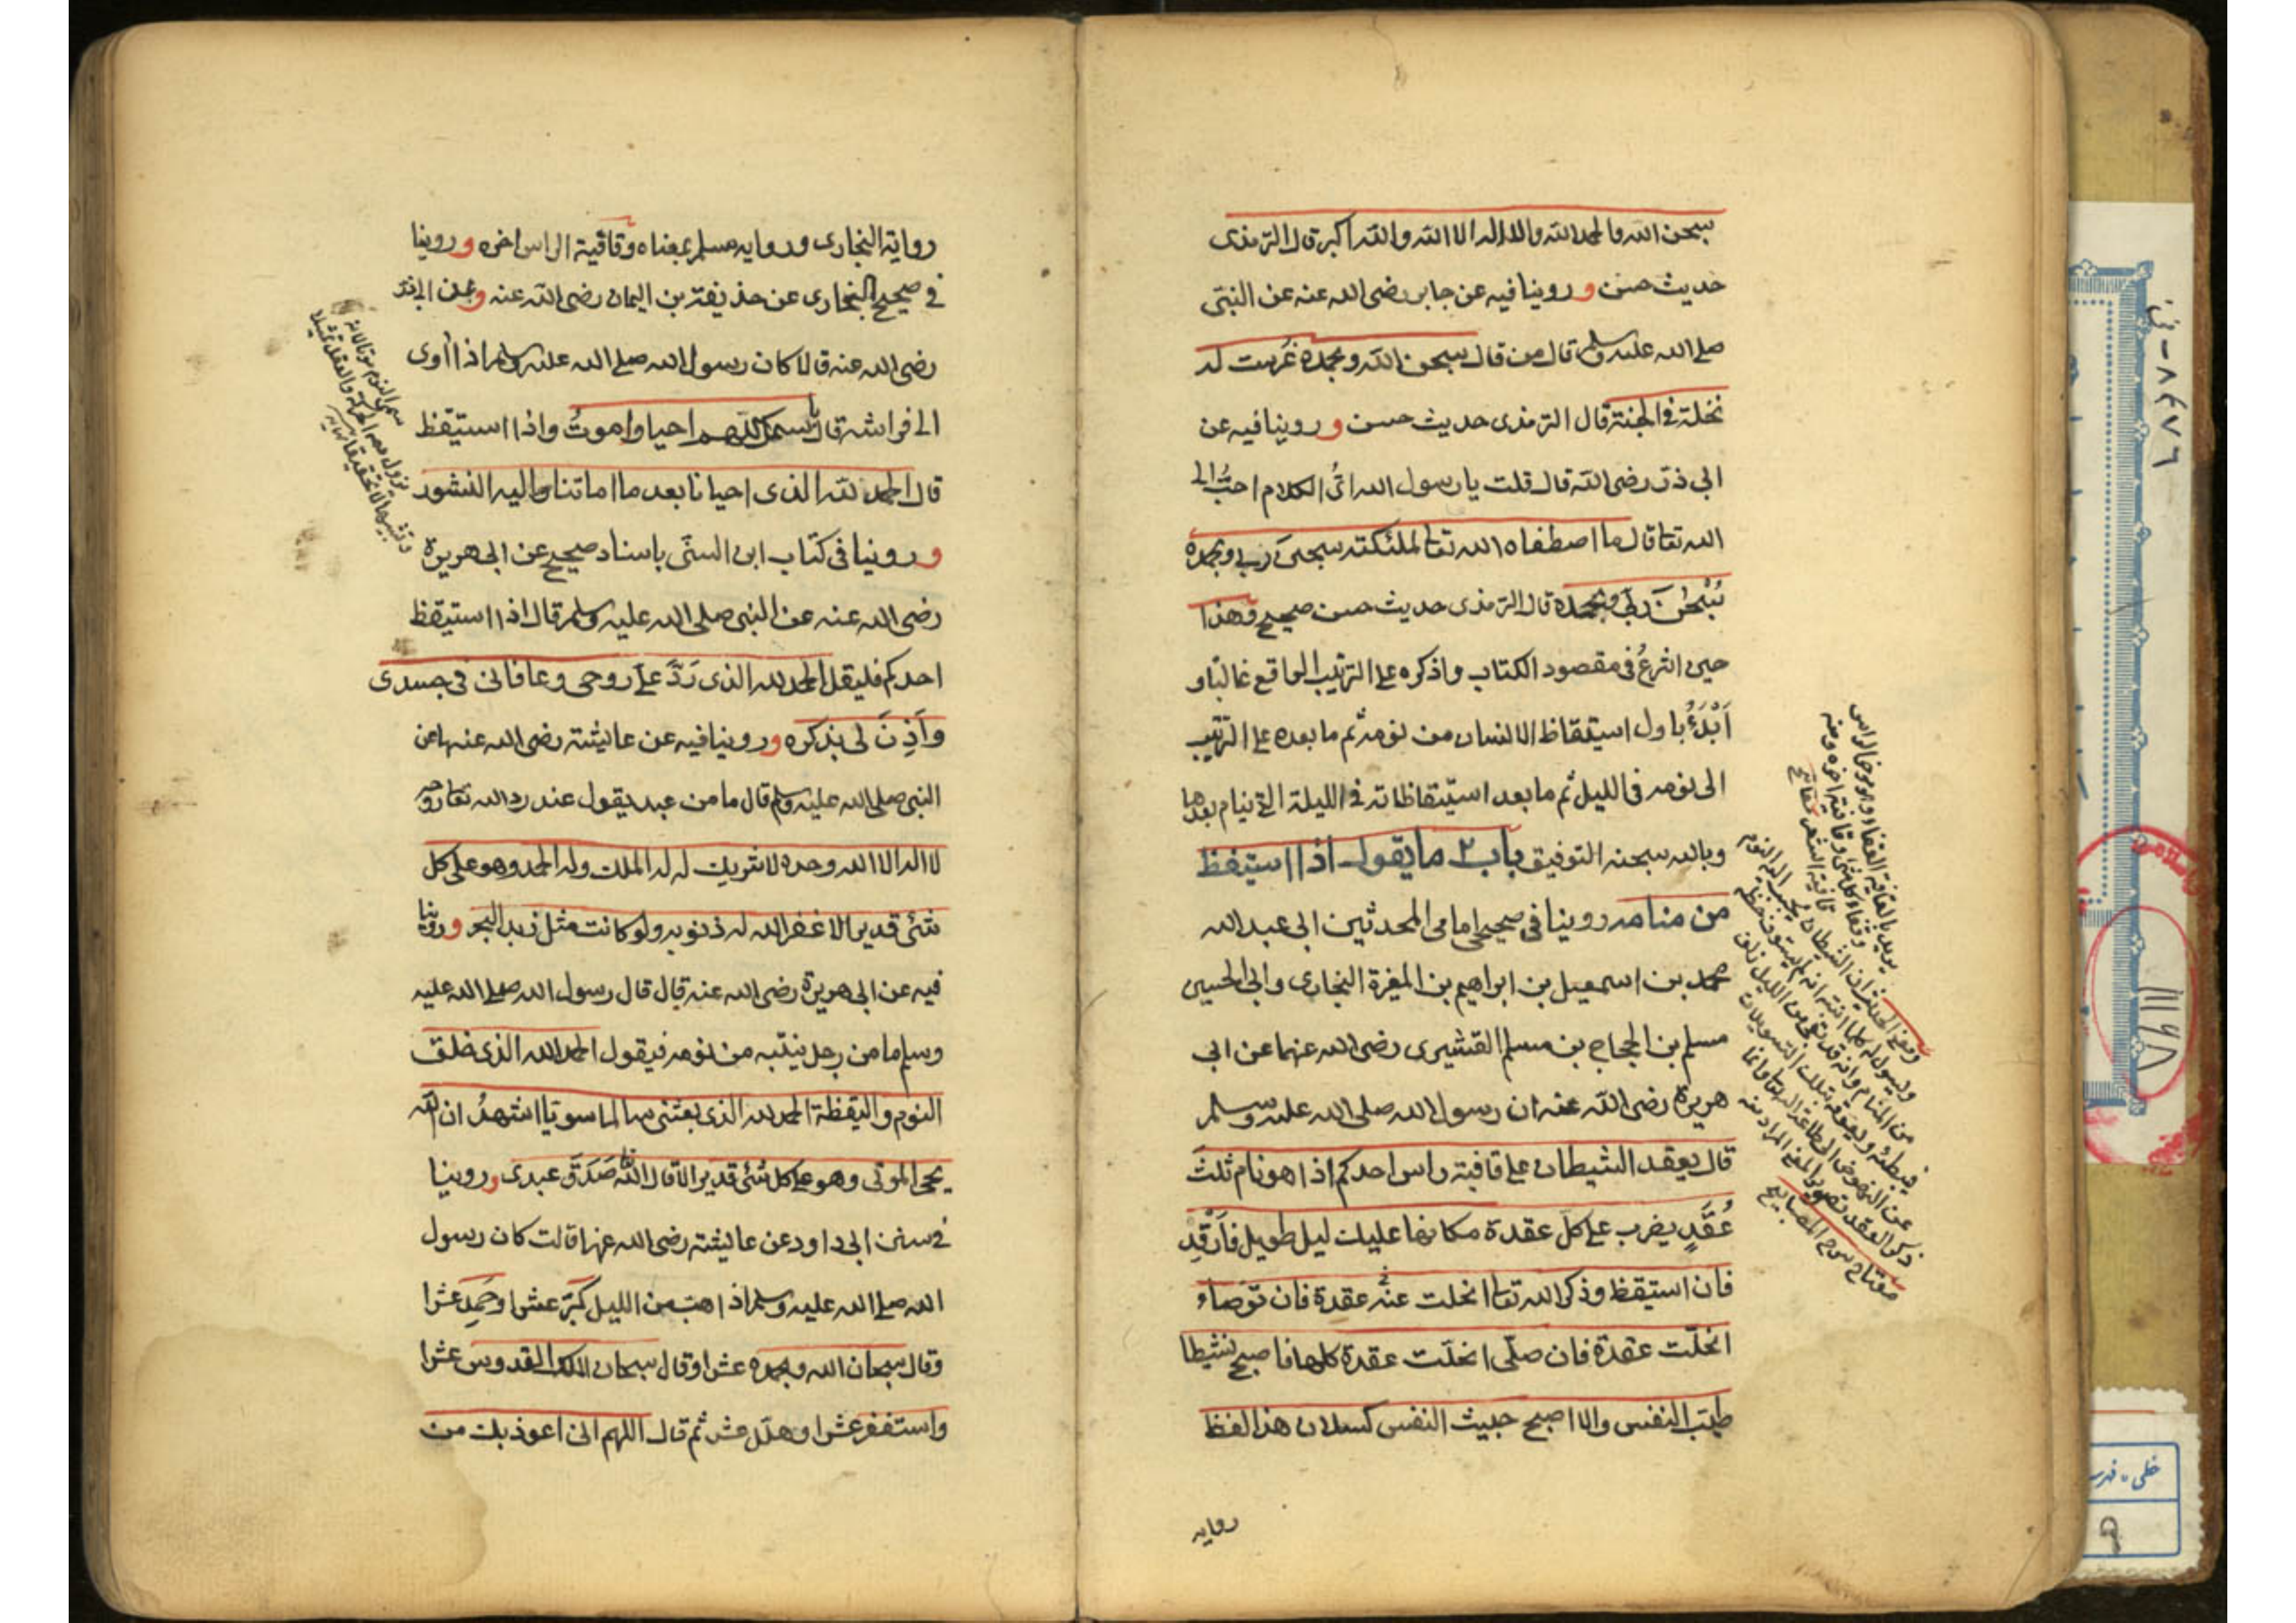 سبحن الله والحمد لله ولا اله الا الله والله اكبر قال الترمذى
حديث حسن وروينا فيه عن جابر رضى الله عنه عن النبى
صلى الله عليه وسلم قال من قال سبحن الله وبحمده غرست له
نخلة فى الجنة قال الترمذى حديث حسن وروينا فيه عن
ابى ذر رضى الله قال قلت يا رسول الله اىّ الكلام احبّ الى
الله تعا قال ما اصطفاه الله تعا لملئكته سبحن ربى وبحمده
سُبْحٰنَ ربى وبحمده قال الترمذى حديث حسن صحيح وهذا
حين اشرعُ فى مقصود الكتاب واذكره على الترتيب الواقع غالبًا و
اَبْدَءُ باول استيقاظ الانسان من نومه ثم ما بعده على الترتيب
الى نومه فى الليل ثم ما بعد استيقاظاته فى الليلة التى ينام بعدها
وبالله سبحنه التوفيق باب ٢ ما يقول اذا استيقظ
من منامه روينا فى صحيحى امامى المحدثين ابى عبد الله
محمد بن اسمعيل بن ابراهيم بن المغيرة البخارى وابى الحسين
مسلم بن الحجاج بن مسلم القشيرى رضى الله عنهما عن ابى
هريرة رضى الله عنه ان رسول الله صلى الله عليه وسلم
قال يعقد الشيطان على قافية راس احدكم اذا هو نام ثلثَ
عُقَدٍ يضرب على كل عقدة مكانها عليك ليل طويل فَارْقُدْ
فان استيقظ وذكر الله تعا انحلت عنه عقدة فان توضاء
انحلّت عقدة فان صلّى انحلّت عقدة كلها فاصبح نشيطا
طيّب النفس والا اصبح خبيث النفس كسلان هذا لفظ
روايه
يريد بالقافية القفاء وهو مؤخر الراس
وقفاء كل شئ وقافيته اخره ومنه
قافية الشعر
مفتاح شرح المصابيح
رواية البخارى وروايه مسلم بمعناه وقافية الراس اخره وروينا
فى صحيح البخارى عن حذيفة بن اليمان رضى الله عنه وعن ابى ذر
رضى الله عنه قالا كان رسول الله صلى الله عليه وسلم اذا أوى
الى فراشه قال باسمك اللهم احيا واموتُ واذا استيقظ
قال الحمد لله الذى احيانا بعد ما اماتنا واليه النشور
وروينا فى كتاب ابن السنّى باسناد صحيح عن ابى هريرة
رضى الله عنه عن النبى صلى الله عليه وسلم قال اذا استيقظ
احدكم فليقل الحمد لله الذى رَدَّ علىّ روحى وعافانى فى جسدى
وأَذِنَ لى بذكره وروينا فيه عن عايشة رضى الله عنها عن
النبى صلى الله عليه وسلم قال ما من عبد يقول عند رد الله تعا روحه
لا اله الا الله وحده لا شريك له له الملك وله الحمد وهو على كل
شئ قدير الا غفر الله له ذنوبه ولو كانت مثل زبد البحر وروينا
فيه عن ابى هريرة رضى الله عنه قال قال رسول الله صلى الله عليه
وسلم ما من رجل ينتبه من نومه فيقول الحمد لله الذى خلق
النوم واليقظة الحمد لله الذى بعثنى سالما سويّا اشهدُ ان الله
يحيى الموتى وهو على كل شئ قدير الا قال الله تعا صَدَقَ عبدى وروينا
فى سنن ابى داود عن عايشة رضى الله عنها قالت كان رسول
الله صلى الله عليه وسلم اذا هبّ من الليل كبّر عشرا وحمد عشرا
وقال سبحان الله وبحمده عشرا وقال سبحان الملك القدوس عشرا
واستغفر عشرا وهلّل عشر ثم قال اللهم انى اعوذ بك من